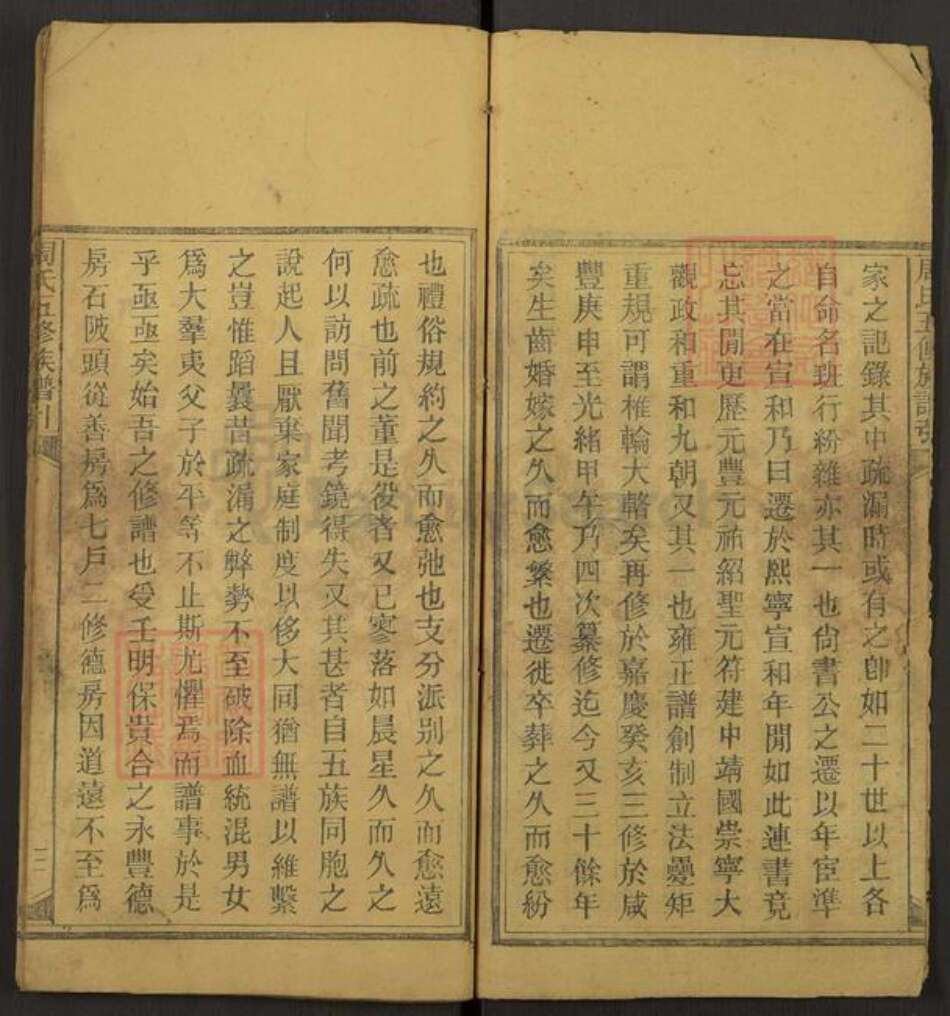 家之記錄其中疏漏時或有之卽如二十世以上各
自命名班行紛雜亦其一也尙書公之遷以年宦準
之當在宣和乃曰遷於熙寧宣和年閒如此連書竟
忘其閒更歷元豐元祐紹聖元符建中靖國崇寧大
觀政和重和九朝又其一也雍正譜創制立法嬳矩
重規可謂椎輪大輅矣再修於嘉慶癸亥三修於咸
豐庚申至光緒甲午乃四次纂修迄今又三十餘年
矣生齒婚嫁之久而愈繁也遷徙卒葬之久而愈紛
也禮俗規約之久而愈弛也支分派別之久而愈遠
愈疏也前之董是役者又已寥落如晨星久而久之
何以訪問舊聞考鏡得失又其甚者自五族同胞之
說起人且厭棄家庭制度以侈大同猶無譜以維繫
之豈惟蹈曩昔疏漏之弊勢不至破除血統混男女
爲大羣夷父子於平等不止斯尤懼焉而譜事於是
乎亟亟矣始吾之修譜也受壬明保貴合之永豐德
房石陂頭從善房爲七戶二修德房因道遠不至爲
周氏五修族譜引
二